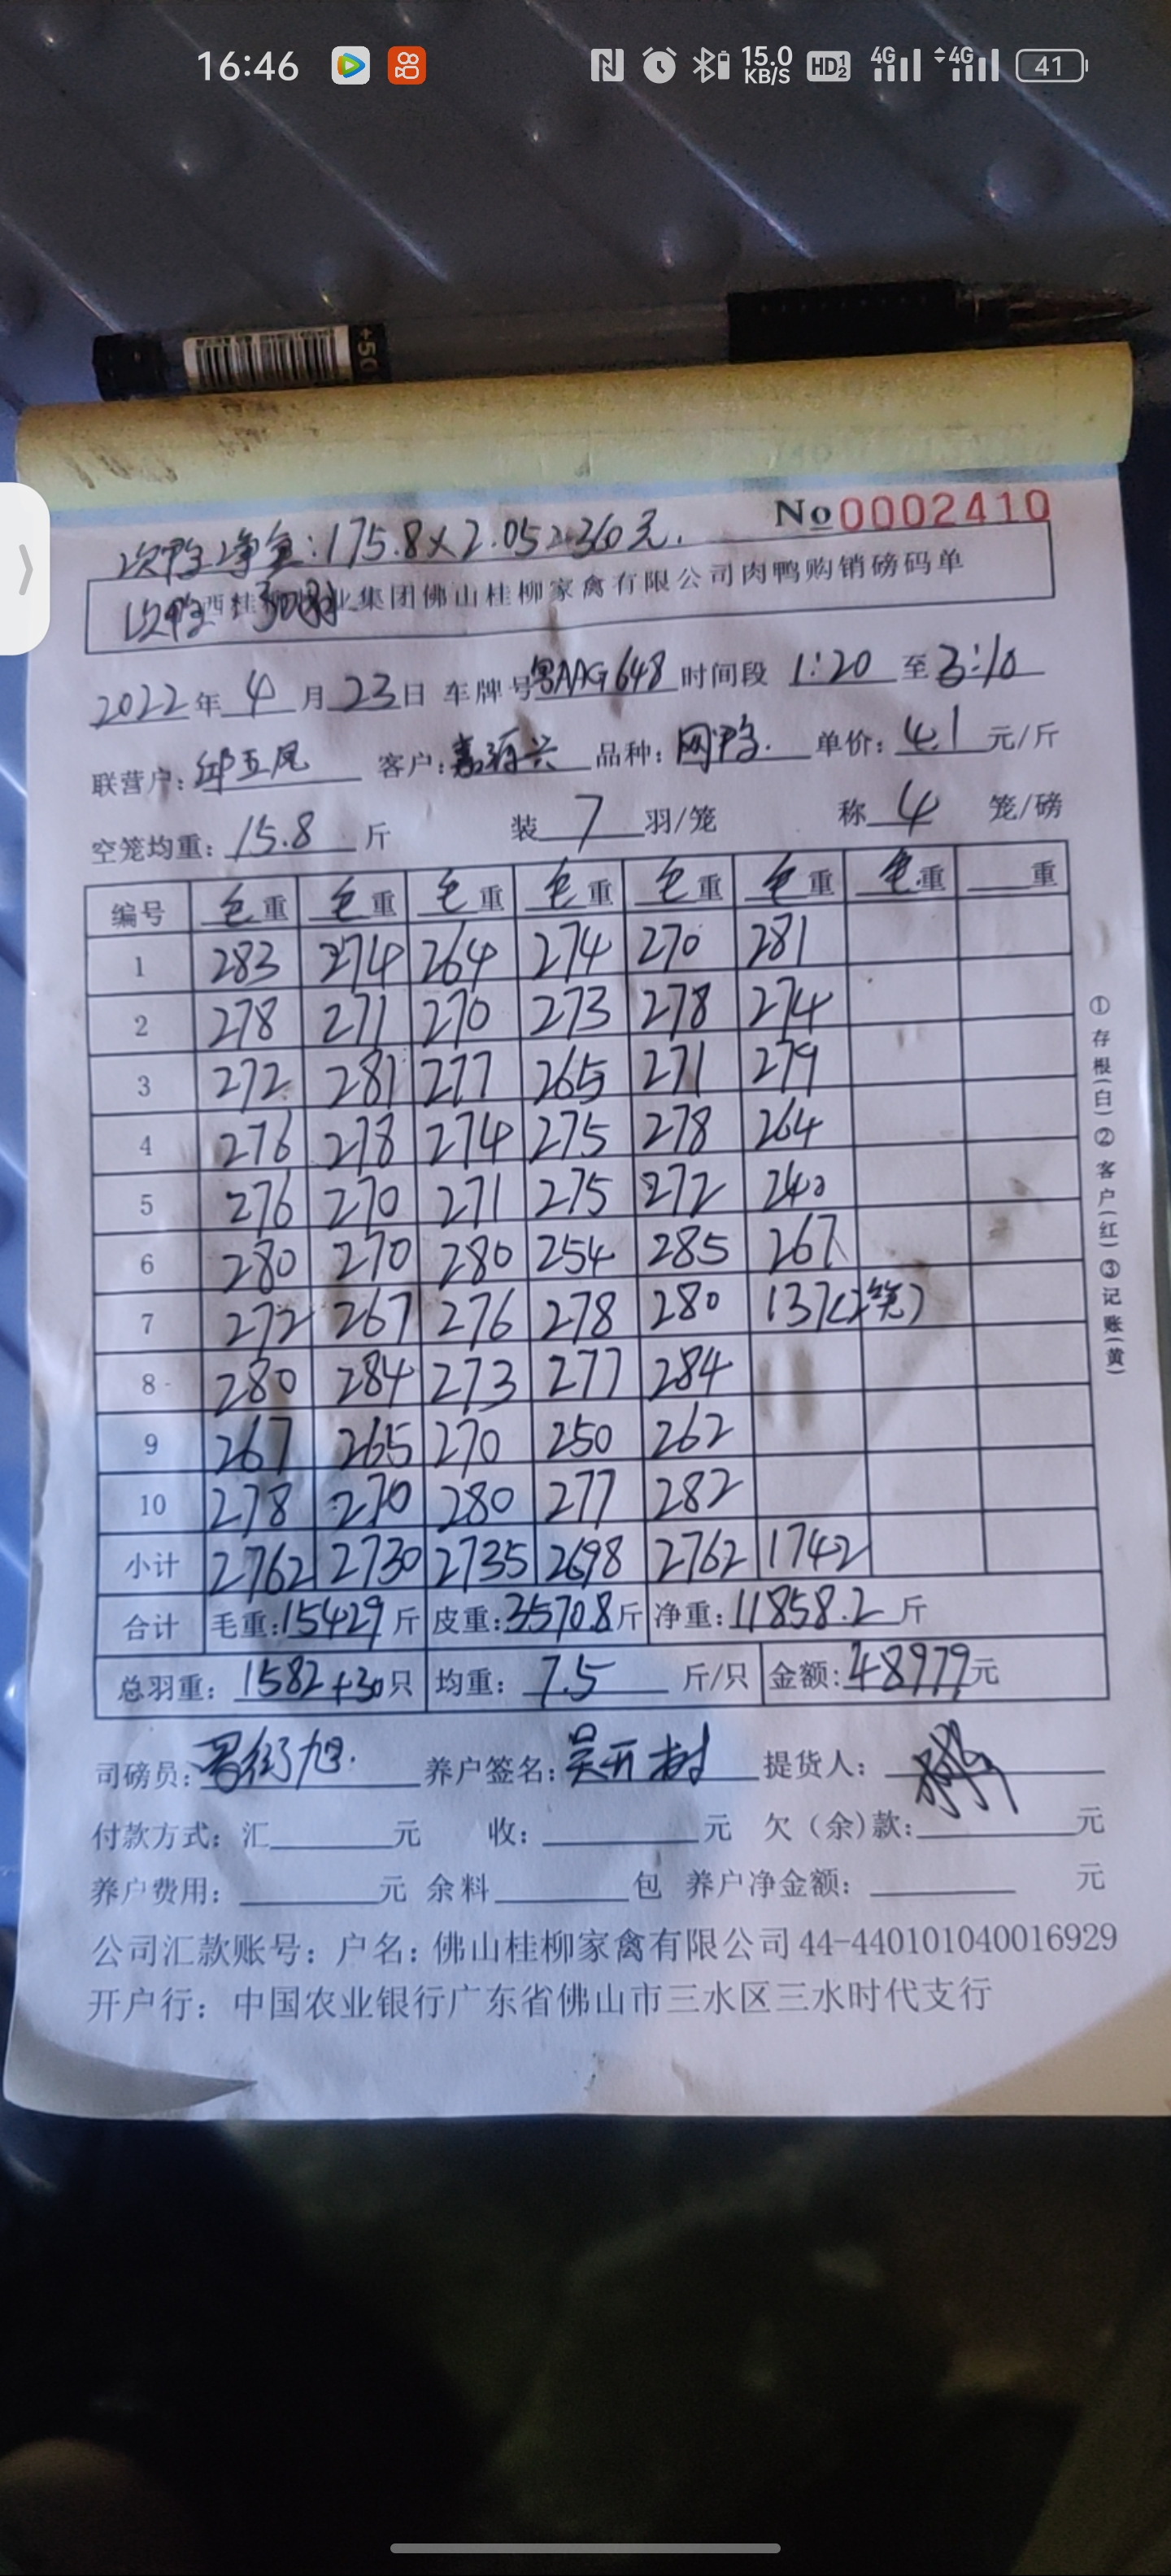 16:46 15.0 KB/S HD 1 2 4G 4G 41
+50
No 0002410
次鸭净重:175.8×2.05=360元.
次鸭 西桂 业集团佛山桂柳家禽有限公司肉鸭购销磅码单
2022年 4月 23日 车牌号 粤AAG648 时间段 1:20 至 3:10
联营户: 邱五凤 客户: 嘉 兴 品种: 网鸭. 单价: 4.1 元/斤
空笼均重: 15.8 斤 装 7 羽/笼 称 4 笼/磅
编号 毛重 毛重 毛重 毛重 毛重 毛重 毛重 重
1 283 274 264 274 270 281
2 278 271 270 273 278 274
3 272 281 277 265 271 279
4 276 278 274 275 278 264
5 276 270 271 275 272 240
6 280 270 280 254 285 267
7 272 267 276 278 280 137(2笼)
8 280 284 273 277 284
9 267 265 270 250 262
10 278 270 280 277 282
小计 2762 2730 2735 2698 2762 1742
合计 毛重:15429斤 皮重:3570.8斤 净重:11858.2斤
总羽重: 1582+30只 均重: 7.5 斤/只 金额:48979元
司磅员: 旭. 养户签名: 吴开树 提货人:
付款方式: 汇 元 收: 元 欠(余)款: 元
养户费用: 元 余料 包 养户净金额: 元
公司汇款账号: 户名: 佛山桂柳家禽有限公司 44-440101040016929
开户行: 中国农业银行广东省佛山市三水区三水时代支行
①存根(白)②客户(红)③记账(黄)